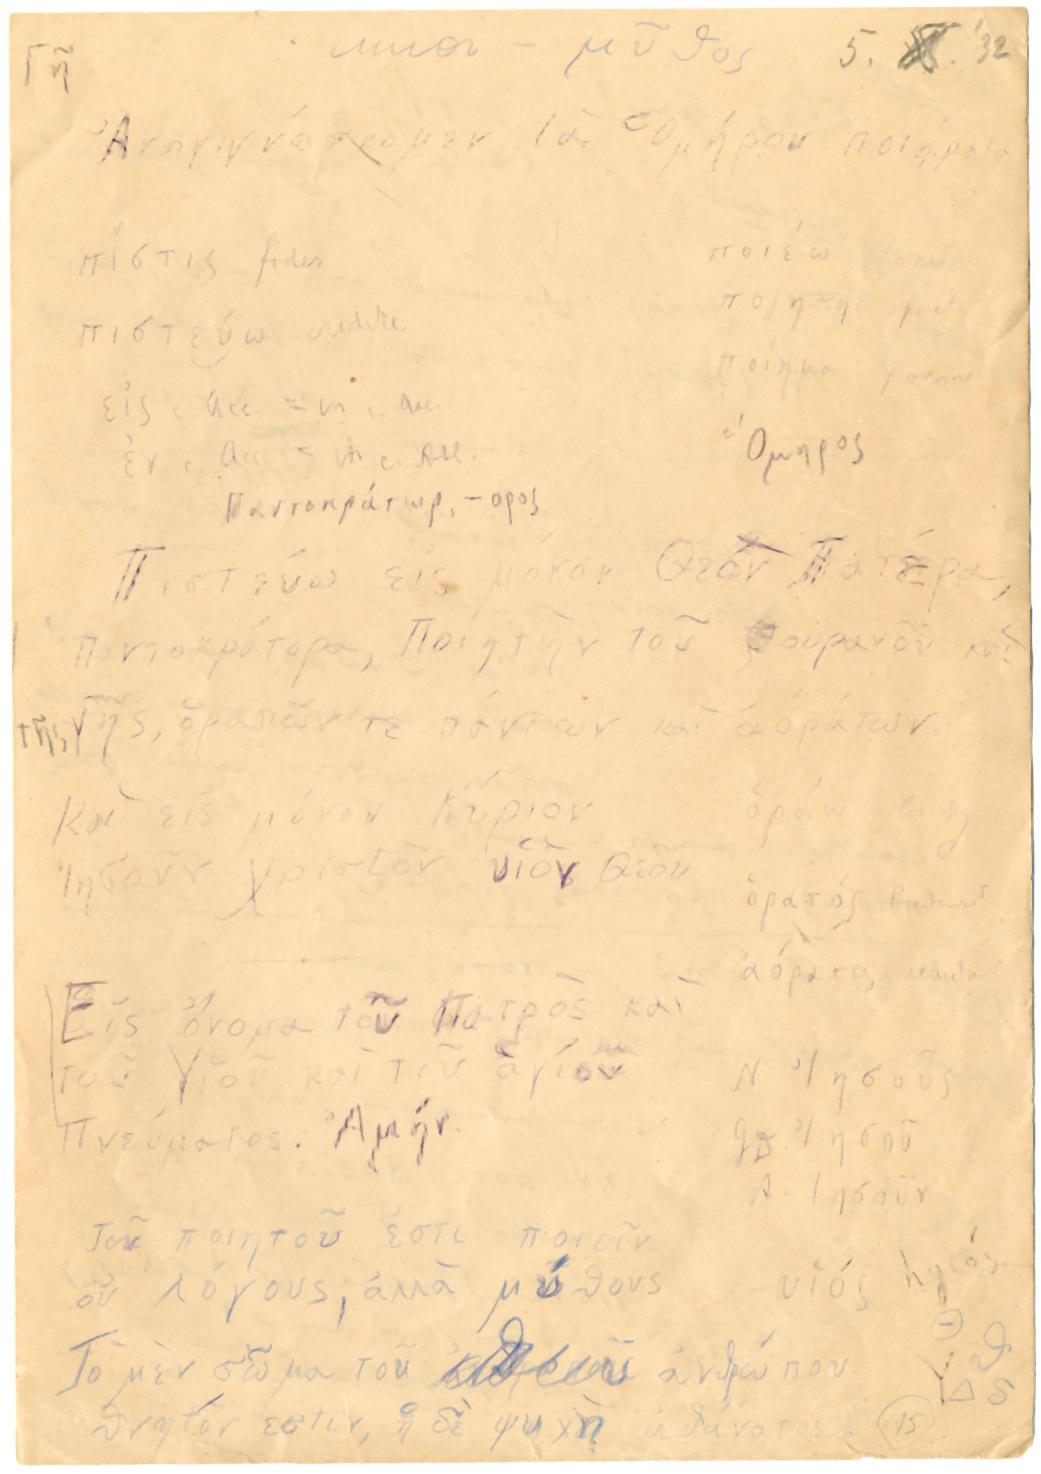 Γῆ
μῦθος 5. '32
Ἀναγιγνώσκομεν τὰ Ὁμήρου ποιήματα
πίστις fides
ποιέω
πιστεύω
ποιητής
ποίημα
εἰς c. Acc. = in c. Acc.
Ὅμηρος
ἐν c. = in c.
Παντοκράτωρ, -ορος
Πιστεύω εἰς μόνον Θεὸν Πατέρα,
παντοκράτορα, Ποιητὴν τοῦ οὐρανοῦ καὶ
τῆς γῆς, ὁρατῶν τε πάντων καὶ ἀοράτων.
Καὶ εἰς μόνον Κύριον
ὁράω
Ἰησοῦν Χριστὸν υἱὸν Θεοῦ
ὁρατός
ἀόρατος
Εἰς ὄνομα τοῦ Πατρὸς καὶ
τοῦ Υἱοῦ καὶ τοῦ ἁγίου
N Ἰησοῦς
Πνεύματος. Ἀμήν.
Ἰησοῦ
A. Ἰησοῦν
Τοῦ ποιητοῦ ἐστι ποιεῖν
οὐ λόγους, ἀλλὰ μύθους
υἱός
Θ θ
Τὸ μὲν σῶμα τοῦ ἀνθρώπου
Δ δ
θνητόν εστιν, ἡ δὲ ψυχὴ ἀθάνατος.
15